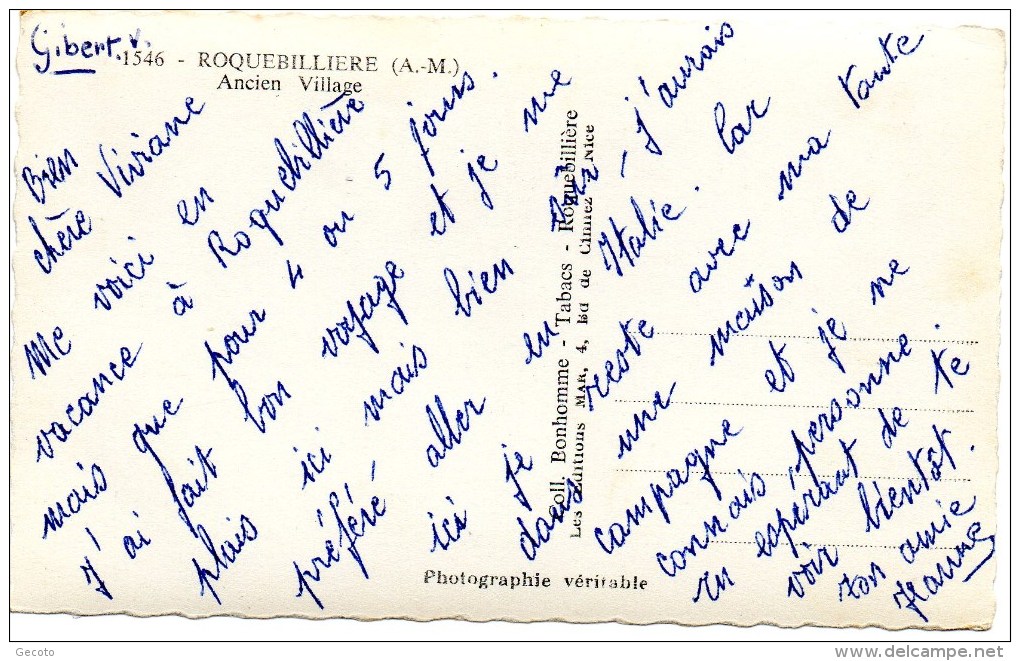 Gibert. V.
1546 - ROQUEBILLIERE (A.-M.)
Ancien Village
Bien
chère Viviane
Me voici en
vacance à Roquebillière
mais que pour 4 ou 5 jours.
J'ai fait bon voyage et je me
plais ici mais bien
préféré aller en Italie. Car
ici je reste avec ma tante
dans une maison de
campagne et je ne
connais personne.
En espérant de te
voir bientôt.
ton amie
Coll. Bonhomme - Tabacs - Roquebillière
Les Editions MAR, 4, Bd de Cimiez - Nice
j'aurais
Photographie véritable
Delcampe.net
Gecoto